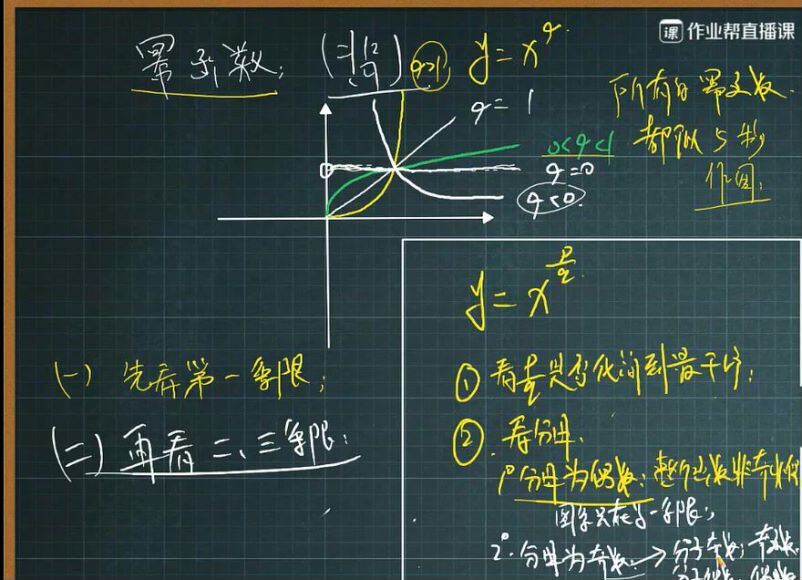 课 作业帮直播课
幂函数:
q>1
y=x^q
q=1
所有的幂函数
0<q<1
都可以5秒
q=0
作图:
q<0
y=x^{p/q}
(一) 先看第一象限;
① 看p/q是否化简到最干净;
(二) 再看二、三象限:
② 看分母.
1° 分母为偶数: 整个函数非奇非偶
图象只在第一象限;
2°. 分母为奇数 → 分子奇数: 奇函数